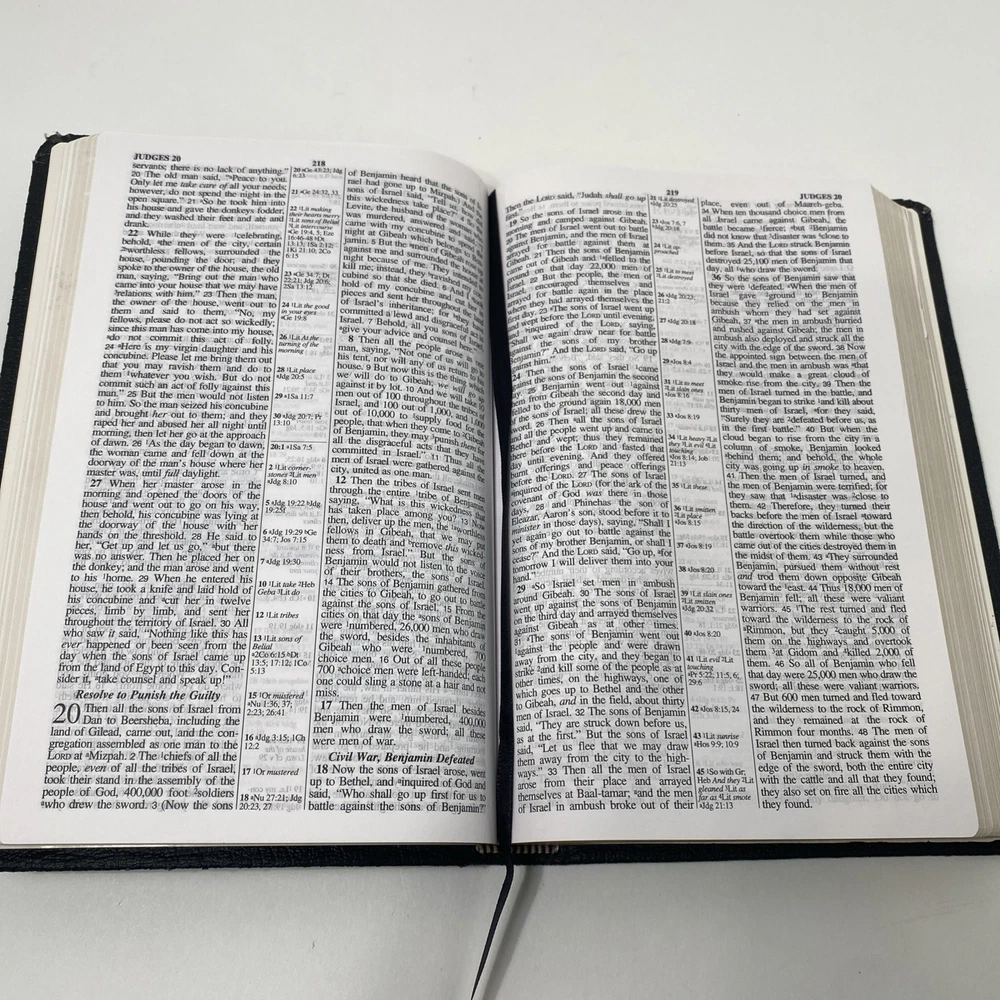 JUDGES 20
218
servants; there is no lack of anything."
20 The old man said, "Peace to you.
Only let me take care of all your needs;
however, do not spend the night in the
open square." 21 So he took him into
his house and gave the donkeys fodder,
and they washed their feet and ate and
drank.
22 While they were celebrating,
behold, the men of the city, certain
worthless fellows, surrounded the
house, pounding the door; and they
spoke to the owner of the house, the old
man, saying, "Bring out the man who
came into your house that we may have
relations with him." 23 Then the man,
the owner of the house, went out to
them and said to them, "No, my
fellows, please do not act so wickedly;
since this man has come into my house,
do not commit this act of folly.
24 Here is my virgin daughter and his
concubine. Please let me bring them out
that you may ravish them and do to
them whatever you wish. But do not
commit such an act of folly against this
man." 25 But the men would not listen
to him. So the man seized his concubine
and brought her out to them; and they
raped her and abused her all night until
morning, then let her go at the approach
of dawn. 26 As the day began to dawn,
the woman came and fell down at the
doorway of the man's house where her
master was, until full daylight.
27 When her master arose in the
morning and opened the doors of the
house and went out to go on his way,
then behold, his concubine was lying at
the doorway of the house with her
hands on the threshold. 28 He said to
her, "Get up and let us go," but there
was no answer. Then he placed her on
the donkey; and the man arose and went
to his home. 29 When he entered his
house, he took a knife and laid hold of
his concubine and cut her in twelve
pieces, limb by limb, and sent her
throughout the territory of Israel. 30 All
who saw it said, "Nothing like this has
ever happened or been seen from the
day when the sons of Israel came up
from the land of Egypt to this day. Con-
sider it, take counsel and speak up!"
Resolve to Punish the Guilty
20 Then all the sons of Israel from
Dan to Beersheba, including the
land of Gilead, came out, and the con-
gregation assembled as one man to the
LORD at Mizpah. 2 The chiefs of all the
people, even of all the tribes of Israel,
took their stand in the assembly of the
people of God, 400,000 foot soldiers
who drew the sword. 3 (Now the sons
of Benjamin heard that the sons of
rael had gone up to Mizpah.) And the
sons of Israel said, "Tell us, how did
this wickedness take place?" 4 So the
Levite, the husband of the woman who
was murdered, answered and said, "I
came with my concubine to spend the
night at Gibeah which belongs to Ben-
jamin. 5 But the men of Gibeah rose up
against me and surrounded the house at
night because of me. They intended to
kill me; instead, they ravished my con-
cubine so that she died. 6 And I took
hold of my concubine and cut her in
pieces and sent her throughout the land
of Israel's inheritance; for they have
committed a lewd and disgraceful act in
Israel. 7 Behold, all you sons of Israel,
give your advice and counsel here."
8 Then all the people arose as one
man, saying, "Not one of us will go to
his tent, nor will any of us return to his
house. 9 But now this is the thing which
we will do to Gibeah; we will go up
against it by lot. 10 And we will take 10
men out of 100 throughout the tribes of
Israel, and 100 out of 1,000, and 1,000
out of 10,000 to supply food for the
people, that when they come to Gibeah
of Benjamin, they may punish them for
all the disgraceful acts that they have
committed in Israel." 11 Thus all the
men of Israel were gathered against the
city, united as one man.
12 Then the tribes of Israel sent men
through the entire tribe of Benjamin,
saying, "What is this wickedness that
has taken place among you? 13 Now
then, deliver up the men, the worthless
fellows in Gibeah, that we may put
them to death and remove this wicked-
ness from Israel." But the sons of
Benjamin would not listen to the voice
of their brothers, the sons of Israel.
14 The sons of Benjamin gathered from
the cities to Gibeah, to go out to battle
against the sons of Israel. 15 From the
cities on that day the sons of Benjamin
were numbered, 26,000 men who draw
the sword, besides the inhabitants of
Gibeah who were numbered, 700
choice men. 16 Out of all these people
700 choice men were left-handed; each
one could sling a stone at a hair and not
miss.
17 Then the men of Israel besides
Benjamin were numbered, 400,000
men who draw the sword; all these
were men of war.
Civil War, Benjamin Defeated
18 Now the sons of Israel arose, went
up to Bethel, and inquired of God and
said, "Who shall go up first for us to
battle against the sons of Benjamin?"
219
JUDGES 20
Then the LORD said, "Judah shall go up
first."
19 So the sons of Israel arose in the
morning and camped against Gibeah.
20 The men of Israel went out to battle
against Benjamin, and the men of Israel
arrayed for battle against them at
Gibeah. 21 Then the sons of Benjamin
came out of Gibeah and felled to the
ground on that day 22,000 men of
Israel. 22 But the people, the men of
Israel, encouraged themselves and
arrayed for battle again in the place
where they had arrayed themselves the
first day. 23 The sons of Israel went up
and wept before the LORD until evening,
and inquired of the LORD, saying,
"Shall we again draw near for battle
against the sons of my brother
Benjamin?" And the LORD said, "Go up
against him."
24 Then the sons of Israel came
against the sons of Benjamin the second
day. 25 Benjamin went out against
them from Gibeah the second day and
felled to the ground again 18,000 men
of the sons of Israel; all these drew the
sword. 26 Then all the sons of Israel
and all the people went up and came to
Bethel and wept; thus they remained
there before the LORD and fasted that
day until evening. And they offered
burnt offerings and peace offerings
before the LORD. 27 The sons of Israel
inquired of the LORD (for the ark of the
covenant of God was there in those
days, 28 and Phinehas the son of
Eleazar, Aaron's son, stood before it to
minister in those days), saying, "Shall I
yet again go out to battle against the
sons of my brother Benjamin, or shall I
cease?" And the LORD said, "Go up, for
tomorrow I will deliver them into your
hand."
29 So Israel set men in ambush
around Gibeah. 30 The sons of Israel
went up against the sons of Benjamin
on the third day and arrayed themselves
against Gibeah as at other times.
31 The sons of Benjamin went out
against the people and were drawn
away from the city, and they began to
strike and kill some of the people as at
other times, on the highways, one of
which goes up to Bethel and the other
to Gibeah, and in the field, about thirty
men of Israel. 32 The sons of Benjamin
said, "They are struck down before us,
as at the first." But the sons of Israel
said, "Let us flee that we may draw
them away from the city to the high-
ways." 33 Then all the men of Israel
arose from their place and arrayed
themselves at Baal-tamar; and the men
of Israel in ambush broke out of their
place, even out of Maareh-geba.
34 When ten thousand choice men from
all Israel came against Gibeah, the
battle became fierce; but Benjamin
did not know that disaster was close to
them. 35 And the LORD struck Benjamin
before Israel, so that the sons of Israel
destroyed 25,100 men of Benjamin that
day, all who draw the sword.
36 So the sons of Benjamin saw that
they were defeated. When the men of
Israel gave ground to Benjamin
because they relied on the men in
ambush whom they had set against
Gibeah, 37 the men in ambush hurried
and rushed against Gibeah; the men in
ambush also deployed and struck all the
city with the edge of the sword. 38 Now
the appointed sign between the men of
Israel and the men in ambush was that
they would make a great cloud of
smoke rise from the city. 39 Then the
men of Israel turned in the battle, and
Benjamin began to strike and kill about
thirty men of Israel, for they said,
"Surely they are defeated before us, as
in the first battle." 40 But when the
cloud began to rise from the city in a
column of smoke, Benjamin looked
behind them; and behold, the whole
city was going up in smoke to heaven.
41 Then the men of Israel turned, and
the men of Benjamin were terrified; for
they saw that disaster was close to
them. 42 Therefore, they turned their
backs before the men of Israel toward
the direction of the wilderness, but the
battle overtook them while those who
came out of the cities destroyed them in
the midst of them. 43 They surrounded
Benjamin, pursued them without rest
and trod them down opposite Gibeah
toward the east. 44 Thus 18,000 men of
Benjamin fell; all these were valiant
warriors. 45 The rest turned and fled
toward the wilderness to the rock of
Rimmon, but they caught 5,000 of
them on the highways and overtook
them at Gidom and killed 2,000 of
them. 46 So all of Benjamin who fell
that day were 25,000 men who draw the
sword; all these were valiant warriors.
47 But 600 men turned and fled toward
the wilderness to the rock of Rimmon,
and they remained at the rock of
Rimmon four months. 48 The men of
Israel then turned back against the sons
of Benjamin and struck them with the
edge of the sword, both the entire city
with the cattle and all that they found;
they also set on fire all the cities which
they found.